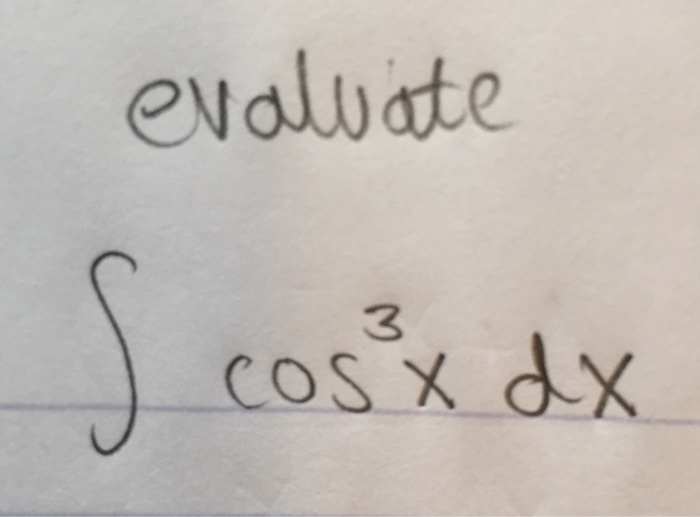 evaluate
∫ cos³x dx